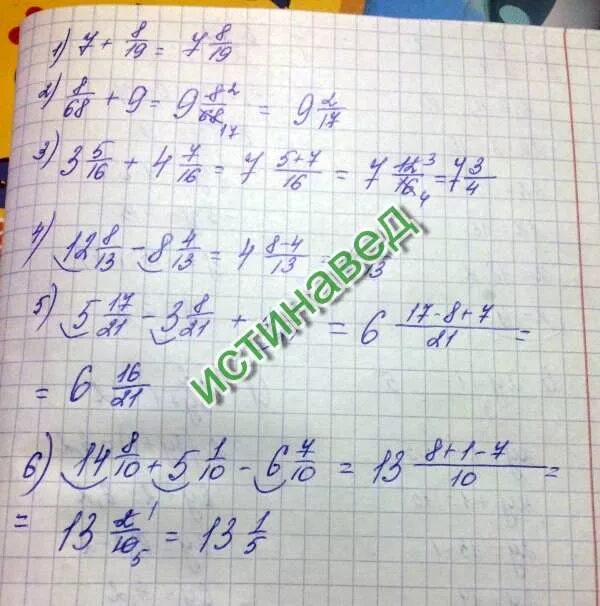 1) 7 + 8/19 = 7 8/19
2) 8/68 + 9 = 9 8/68 2 17 = 9 2/17
3) 3 5/16 + 4 7/16 = 7 5+7/16 = 7 12/16 3 4 = 7 3/4
4) 12 8/13 - 8 4/13 = 4 8-4/13 = 13
5) 5 17/21 - 3 8/21 + = 6 17-8+7/21 =
= 6 16/21
6) 14 8/10 + 5 1/10 - 6 7/10 = 13 8+1-7/10 =
= 13 2/10 1 5 = 13 1/5
истинавед